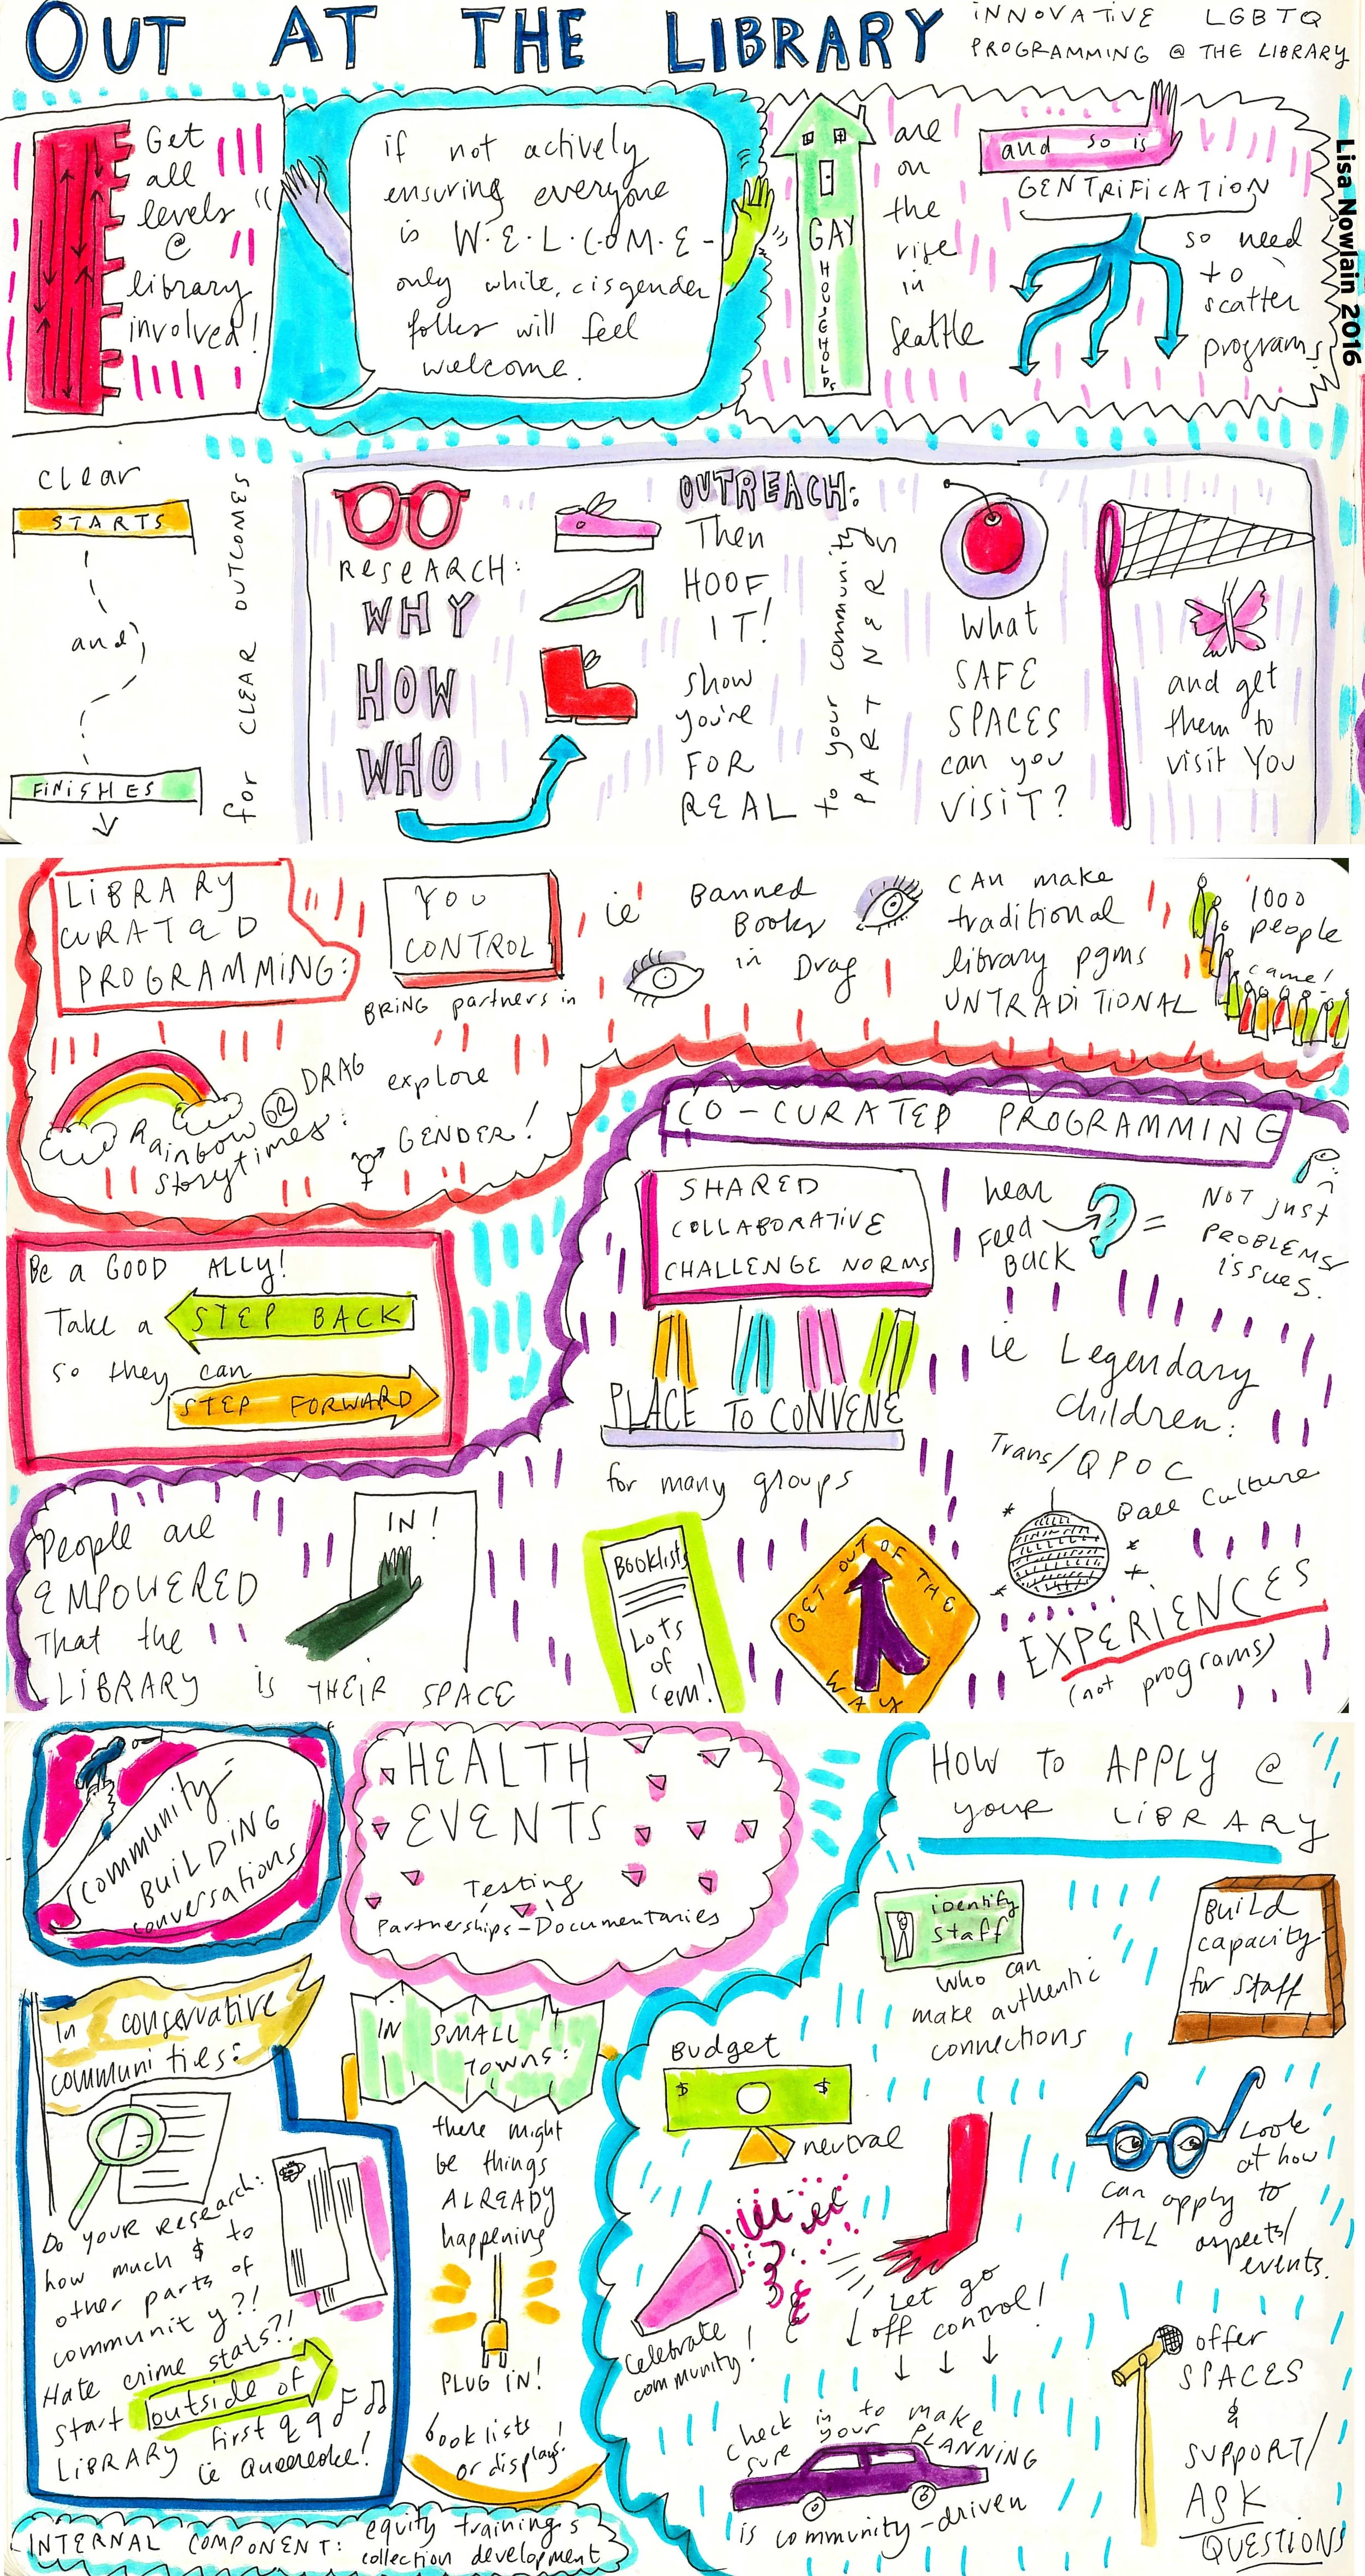 OUT AT THE LIBRARY
INNOVATIVE LGBTQ
PROGRAMMING @ THE LIBRARY
Lisa Nowlain 2016
Get
all
levels
@
library
involved!
if not actively
ensuring everyone
is W·E·L·C·O·M·E-
only white, cisgender
folks will feel
welcome.
GAY
HOUSEHOLDS
are
on
the
rise
in
Seattle
and so is
GENTRIFICATION
so need
to
scatter
programs.
clear
STARTS
and
FINISHES
for CLEAR OUTCOMES
RESEARCH:
WHY
HOW
WHO
OUTREACH:
Then
HOOF
IT!
show
you're
FOR
REAL
to your community
PARTNERS
what
SAFE
SPACES
can you
VISIT?
and get
them to
visit YOU
LIBRARY
CURATED
PROGRAMMING:
YOU
CONTROL
BRING partners in
ie Banned
Books
in Drag
CAN make
traditional
library pgms
UNTRADITIONAL
1000
people
came!
Rainbow OR DRAG
Storytimes:
explore
GENDER!
CO-CURATED PROGRAMMING
SHARED
COLLABORATIVE
CHALLENGE NORMS
hear
FEED
BACK
=
NOT just
PROBLEMS
issues.
Be a GOOD ALLY!
Take a STEP BACK
so they can
STEP FORWARD
PLACE TO CONVENE
for many groups
ie Legendary
Children:
Trans/QPOC
Ball Culture
EXPERIENCES
(not programs)
People are
EMPOWERED
That the
LIBRARY is THEIR SPACE
IN!
BOOKLISTS
LOTS
of
'em!
GET OUT OF THE
WAY
Community-
BUILDING
conversations
HEALTH
EVENTS
Testing
Partnerships-Documentaries
HOW TO APPLY @
your LIBRARY
identify
staff
who can
make authentic
connections
Build
capacity
for staff
In conservative
communities:
Do your research:
how much $ to
other parts of
community?!
Hate crime stats?!
Start outside of
LIBRARY first
ie Queeraoke!
IN SMALL
TOWNS:
there might
be things
ALREADY
happening
PLUG IN!
booklists
or displays!
Budget
$ $
neutral
Celebrate
community!
Let go
off control!
Look
at how
can apply to
ALL aspects/
events.
check in to make
sure your PLANNING
is community-driven
offer
SPACES
&
SUPPORT/
ASK
QUESTIONS
INTERNAL COMPONENT: equity trainings
collection development